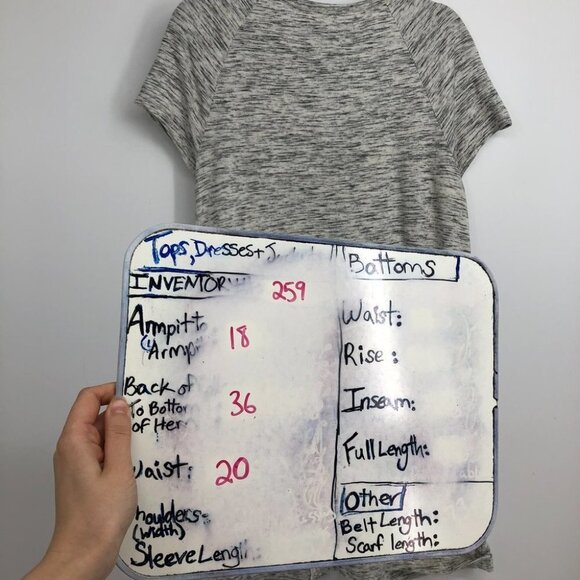 Tops, Dresses + J
INVENTORY
259
Armpitt
Armpi
18
Back of
To Bottor
of Her
36
Waist:
20
Shoulders
(width)
Sleeve Leng
Bottoms
Waist:
Rise:
Inseam:
Full Length:
Other
Belt Length:
Scarf length: